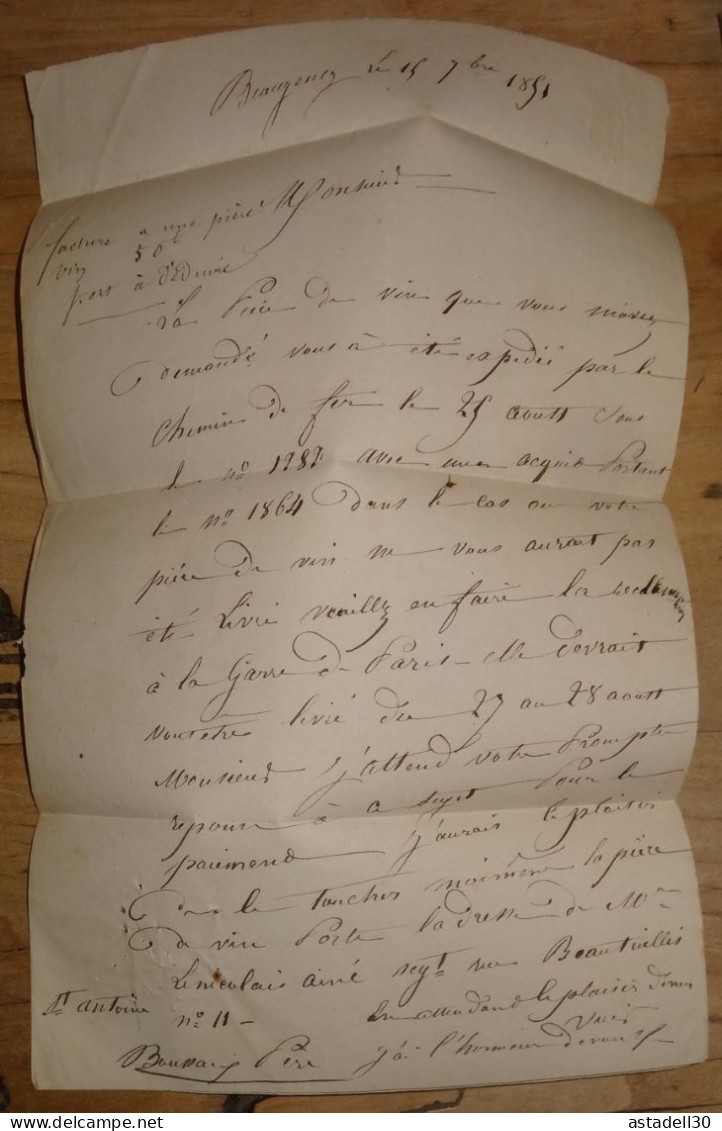 Beaugency Le 15 7bre 1851
facture a une pièce Monsieur
vin 50 f
port à
La Pièce de vin que vous mavez
demandé vous à été expédié par le
chemin de fer le 25 aoust sous
le no 1287 avec un acquid Portant
le no 1864 dans le cas ou votre
pièce de vin ne vous aurait pas
été Livré veuillez en faire la reclamation
à la Garre de Paris elle devrait
vousetre livré du 27 au 28 aoust
Monsieur j'attend votre Prompte
reponse à a sujet Pour le
paiemend j'aurais le plaisir
de le toucher moimême la pièce
de vin Porte la dresse de Mr
ainé negt rue Beautreillis
St antoine no 11 - En attendand le plaisir
j'ai l'honneur
Père
astadell30
© www.delcampe.net